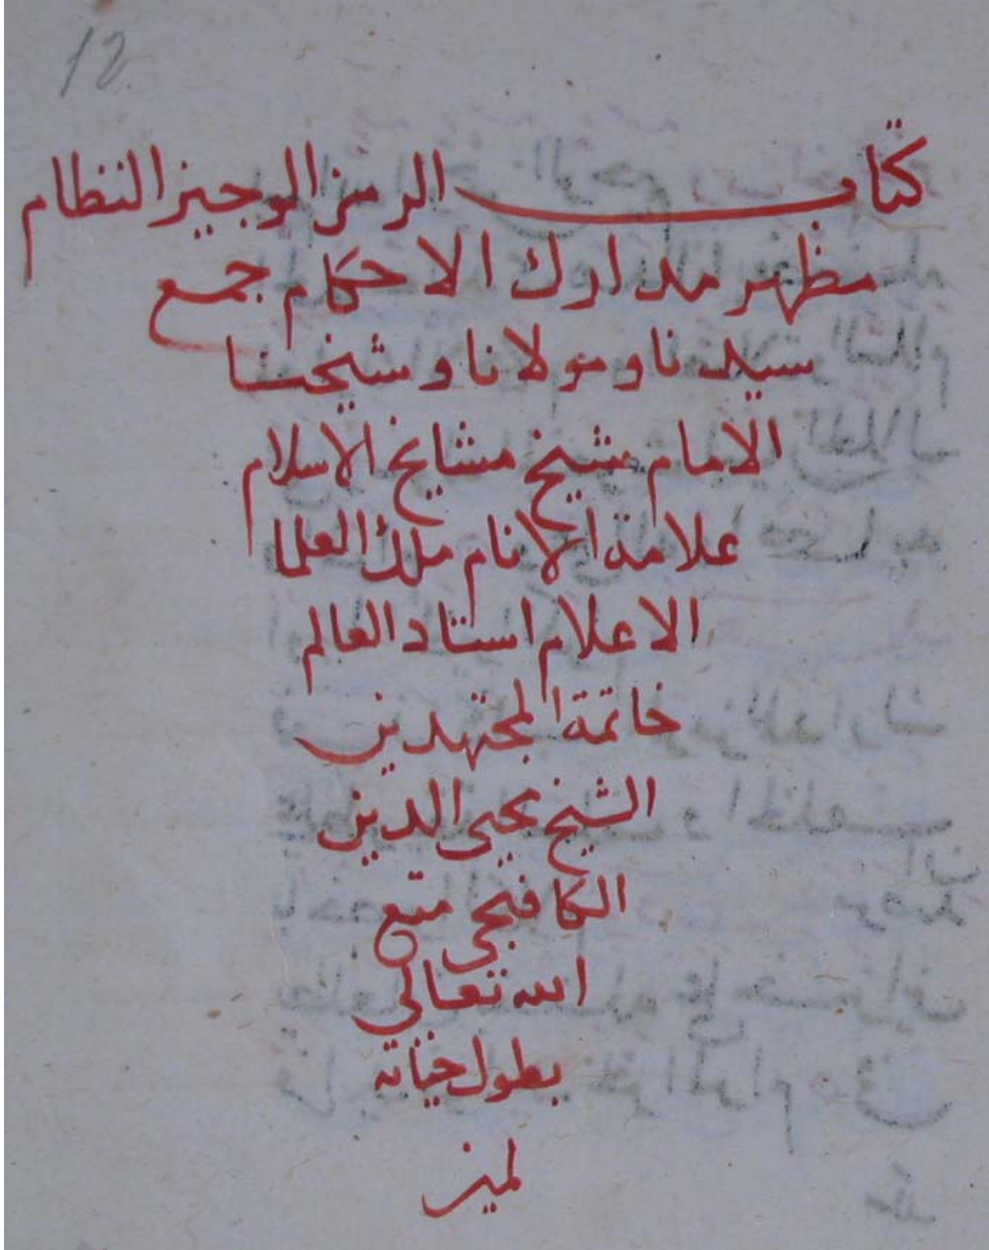 12
كتاب الرمز الوجيز النظام
مظهر مدارك الاحكام جمع
سيدنا ومولانا وشيخنا
الامام شيخ مشايخ الاسلام
علامة الانام ملك العلما
الاعلام استاد العالم
خاتمة المجتهدين
الشيخ محيى الدين
الكافيجى متع
الله تعالى
بطول حياته